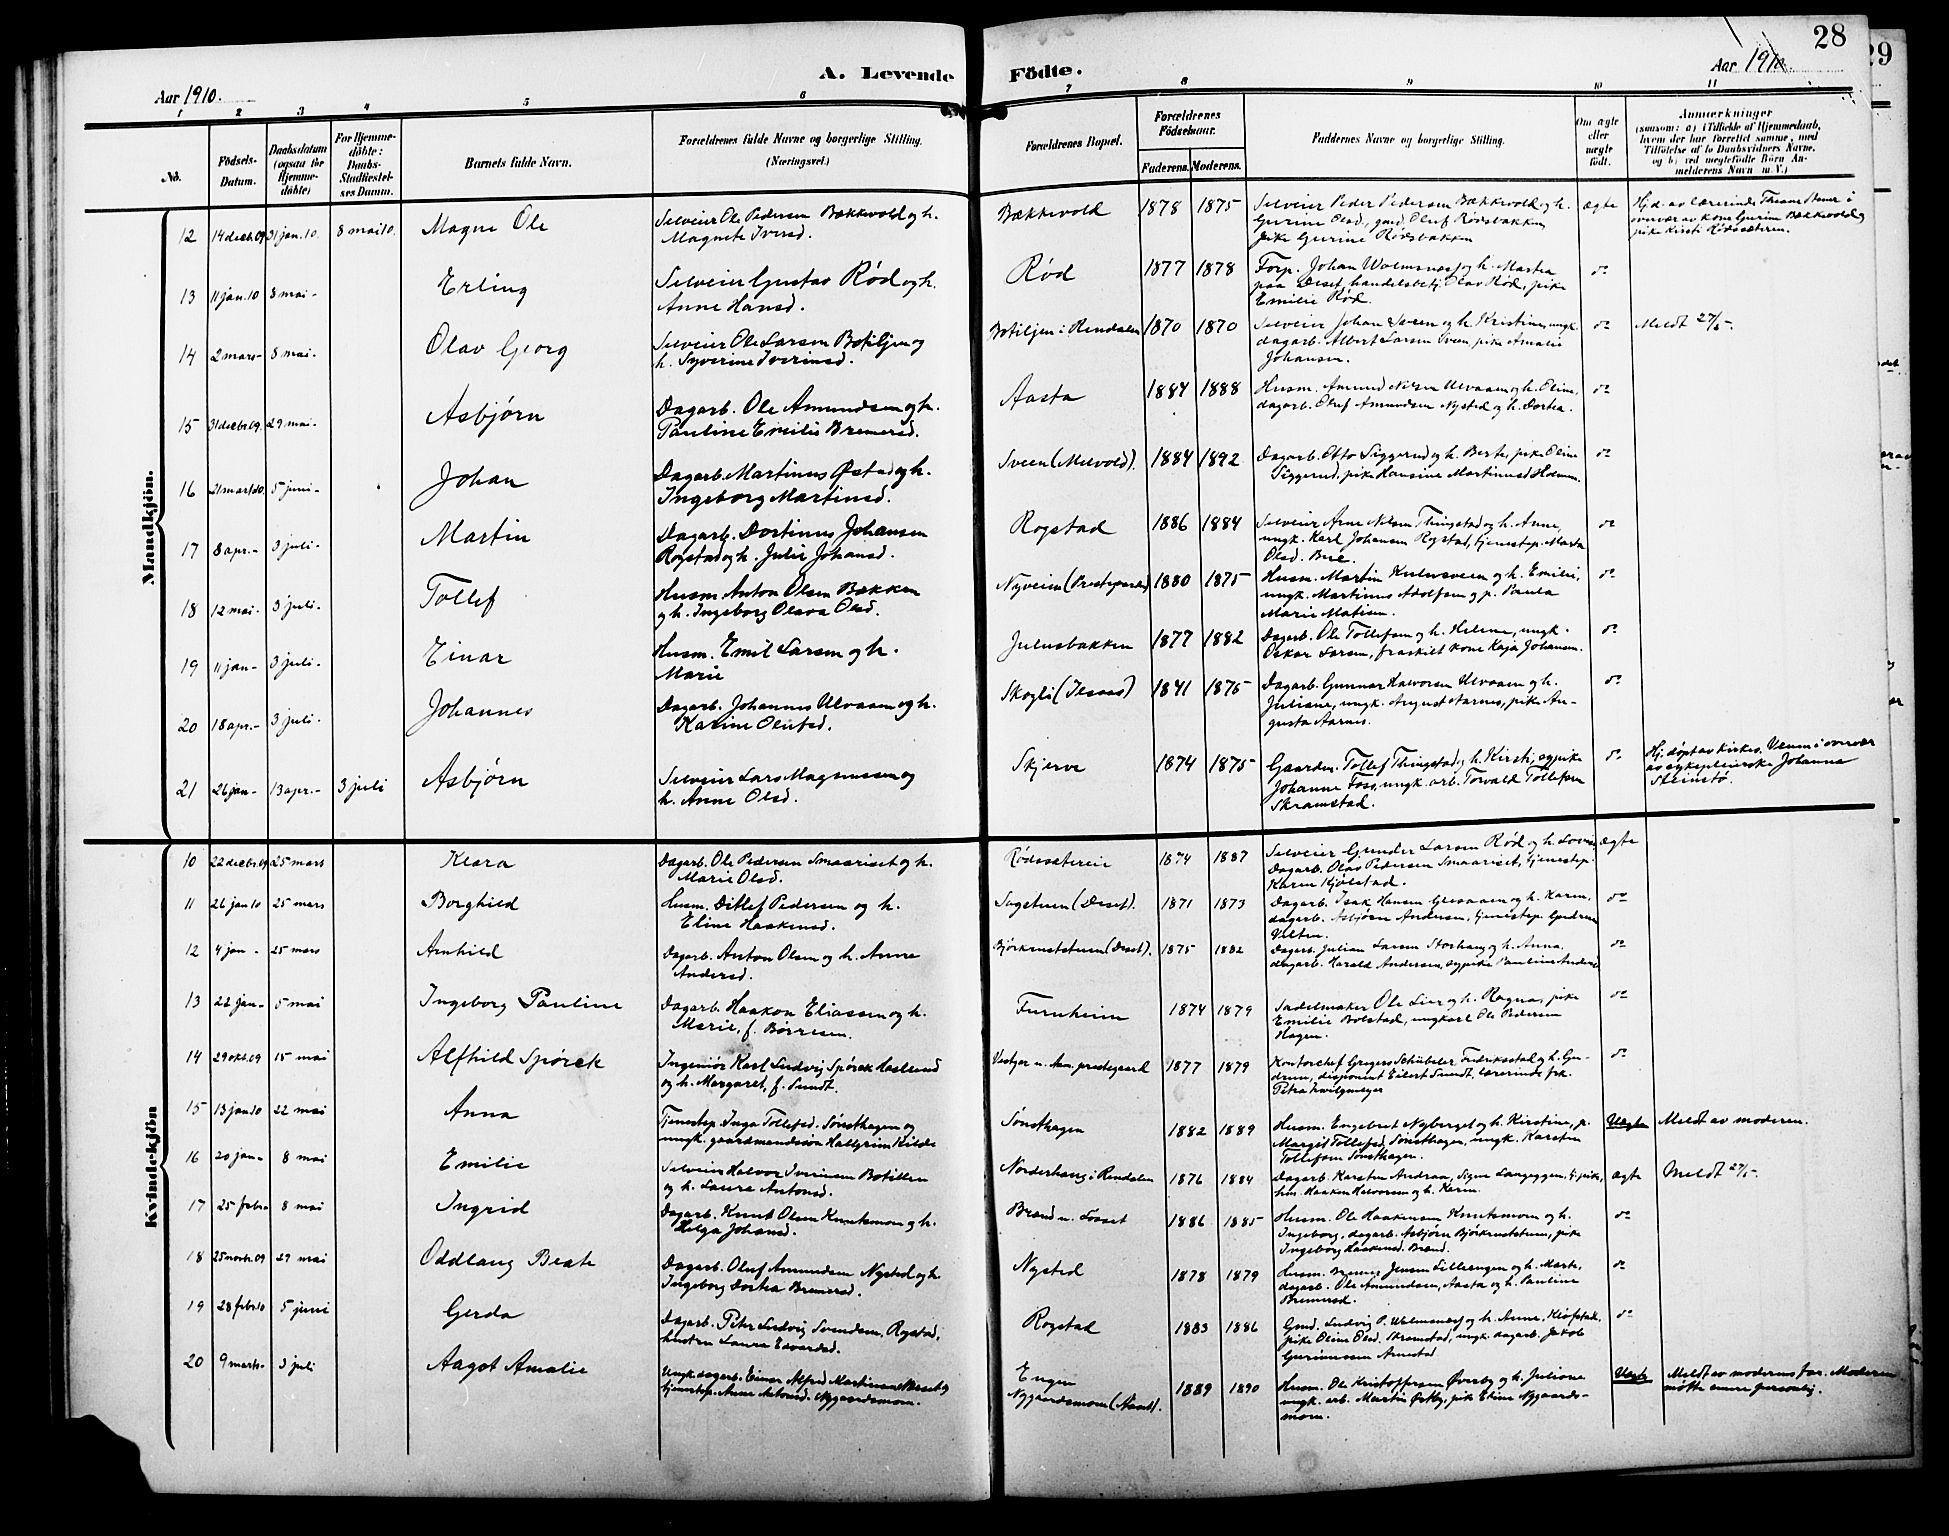 28
29
A. Levende Födte.
Aar 1910.
Aar 1910.
1 2 3 4 5 6 7 8 9 10 11
No.
Födsels-Datum.
Daabsdatum (ogsaa for Hjemmedöbte)
For Hjemmedöbte: Daabs-Stadfæstelses Datum.
Barnets fulde Navn.
Forældrenes fulde Navne og borgerlige Stilling. (Næringsvei.)
Forældrenes Bopæl.
Forældrenes Födselsaar.
Faderens. Moderens.
Faddernes Navne og borgerlige Stilling.
Om ægte eller uægte födt.
Anmærkninger
(saasom: a) i Tilfælde af Hjemmedaab, hvem der har forrettet samme, med Tilföielse af to Daabsvidners Navne, og b) ved uægtefödte Börn Anmelderens Navn m. V.)
Mandkjön.
12 14 decb. 09 31 jan. 10. 8 mai 10. Magne Ole
Selveier Ole Pedersen Bækkevold og h.
Magnete Iversd.
Bækkevold 1878 1875
Selveier Peder Pedersen Bækkevold og h.
Gurine Olsd., gaard. Oluf Rødsbakken,
pike Gurine Rødsbakken
ægte
Hjd. av lærerinde
overvær av kone Gurine Bækkevold og
pike Kirsti Rødssæteren.
13 11 jan. 10 8 mai - Erling
Selveier Gustav Rød og h.
Anne Hansd.
Rød 1877 1878
Forp. Johan Wolmsnæs og h. Martea
paa Deset, handelsbetj. Olav Rød, pike
Emilie Rød.
do
14 2 mars - 8 mai - Olav Georg
Selveier Ole Larsen Botiljen og
h. Syverine Iverinsd.
Botiljen i Rendalen 1870 1870
Selveier Johan Sveen og h. Kristine, ungk.
dagarb. Albert Larsen Sveen, pike Amalie
Johansen.
do Meldt 27/5.
15 31 decbr. 09. 29 mai - Asbjørn
Dagarb. Ole Amundsen og h.
Pauline Emilie Bremersd.
Aasta 1884 1888
Husm. Amund Nilsen Ulvaaen og h. Oline,
dagarb. Oluf Amundsen Nysted og h. Dortea.
do
16 21 marts 10. 5 juni - Johan
Dagarb. Martinus Østad og h.
Ingeborg Martinsd.
Sveen (Melvold). 1884 1892
Dagarb. Otto Siggerud og h. Berte, pike Oline
Siggerud, pike Hansine Martinusd Holmen.
do
17 8 apr. - 3 juli - Martin
Dagarb. Dortinus Johansen
Rogstad og h. Julie Johansd.
Rogstad 1886 1884
Selveier Arne Nilsen Thingstad og h. Anne,
ungk. Karl Johansen Rogstad, tjenestep. Marta
Olsd. Berg.
do
18 12 mai - 3 juli - Tollef
Husm. Anton Olsen Bækken
og h. Ingeborg Olava Olsd.
Nyveien (Prestegaard) 1880 1875
Husm. Martin Kulusveen og h. Emilie,
ungk. Martinus Adolfsen og p. Paula
Marie Matisen.
do
19 11 jan - 3 juli - Einar
Husm. Emil Larsen og h.
Marie
Julusbakken 1877 1882
Dagarb. Ole Tollefsen og h. Helene, ungk.
Oskar Larsen, fraskilt kone Kaja Johansen.
do
20 18 apr. - 3 juli - Johannes
Dagarb. Johannes Ulvaaen og h.
Karine Olufsd.
Skogli (Ilsaas) 1841 1875
Dagarb. Gunnar Halvorsen Ulvaaen og h.
Juliane, ungk. August Aarnes, pike Au-
gusta Aarnes.
do
21 26 jan - 13 apr. - 3 juli Asbjørn
Selveier Lars Magnussen og
h. Anne Olsd.
Skjerve 1874 1875
Gaardm. Tollef Thingstad og h. Kirsti, sypike
Johanne Foss, ungk. arb. Torvald Tollefsen
Skramstad.
do
Hj. døpt av kirkes. Veum i overvær
av sykepleierske Johanna
Steinstø.
Kvindekjön
10 22 decbr. 09 25 mars Klara
Dagarb. Ole Pedersen Smaariset og h.
Marie Olsd.
Rødssætereie 1874 1887
Selveier Gunder Larsen Rød og h. Lovise
Dagarb. Olav Pedersen Smaariset, tjenestep.
Karen Kjølstad.
ægte
11 26 jan 10 25 mars Borghild
Husm. Ditlef Pedersen og h.
Eline Haakensd.
Sagstuen (Deset). 1871 1873
Dagarb. Isak Hansen Ulvaaen og h. Karen,
dagarb. Asbjørn Andersen, tjenestep. Gudrun
Velten.
do
12 4 jan - 25 mars Arnhild
Dagarb. Anton Olsen og h. Anne
Andersd.
Bjørkeneststuen (Deset). 1875 1882
Dagarb. Julian Larsen Storhaug og h. Anna,
dagarb. Harald Andersen, sypike Pauline Anders
do
13 22 jan - 5 mai Ingeborg Pauline
Dagarb. Haakon Eliassen og h.
Marie, f. Børresen.
Furuheim 1874 1879
Sadelmaker Ole Lier og h. Ragna, pike
Emilie Bolstad, ungkarl Ole Pedersen
Hagen.
do
14 29 okt. 09 15 mai Alfhild Spørck
Ingeniør Karl Ludvig Spørck Haslund
og h. Margaret, f. Sundt.
prestegaard 1877 1879
Kontorchef Gregers Schübeler Fredriksstad og h. Gu-
drun, disponent Eilert Sundt, lærerinde frk.
Petra Kvilgmoyer
do
15 13 jan 10 22 mai Anna
Tjenestep. Inga Tollefsd. Sønsthagen og
ungk. gaardmandssøn Hallgrim Kilde
Sønsthagen 1882 1889
Husm. Engebret Nyberget og h. Kirstine, p.
Margit Tollefsd. Sønsthagen, ungk. Karsten
Tollefsen Sønsthagen.
Uægte Meldt av moderen.
16 20 jan - 8 mai Emilie
Selveier Halvor Iverinsen Botillen
og h. Laura Antonsd.
Norderhaug i Rendalen 1876 1884
Dagarb. Karsten Andraa, Signe Langeggen, tj. pike,
hm. Haaken Halvorsen og h. Karen.
ægte Meldt 27/5.
17 25 febr. 8 mai Ingrid
Dagarb. Knut Olsen Knutsmoen og h.
Helga Johansd.
Brænd u. Losset 1886 1885
Husm. Ole Haakensen Knutsmoen og h.
Ingeborg, dagarb. Asbjørn Bjørkeneststuen, pike
Ingeborg Haakensd. Brænd.
do
18 25 novbr. 09 29 mai Oddlaug Beate
Dagarb. Oluf Amundsen Nysted og h.
Ingeborg Dortea Bremersd.
Nysted 1878 1879
Husm. Bremer Jensen Lilleengen og h. Marte,
dagarb. Ole Amundsen, Aasta og h. Pauline
Bremersd.
do
19 28 febr. 10 5 juni Gerda
Dagarb. Peter Ludvig Svendsen, Rogstad,
hustru Laura Edvardsd.
Rogstad 1883 1886
Gmd. Ludvig P. Wolmsnæs og h. Anne, Kløfstad,
pike Oline Olsd. Skramstad, ungk. dagarb. Jakob
Gurinussen Arnestad
do
20 9 marts - 3 juli Aagot Amalie
Ungk. dagarb. Einar Alfred Martinsen
tjenestep. Anne Antonsd. Nygaardsmoen.
Engen
Nygaardsmoen (Aasta). 1889 1890
Husm. Ole Kristoffersen Øverby og h. Juliane
ungk. arb. Martin Østby, pike Eline Nygaards-
moen.
Uægte
Meldt av moderens far. Moderen
møtte senere personlig.